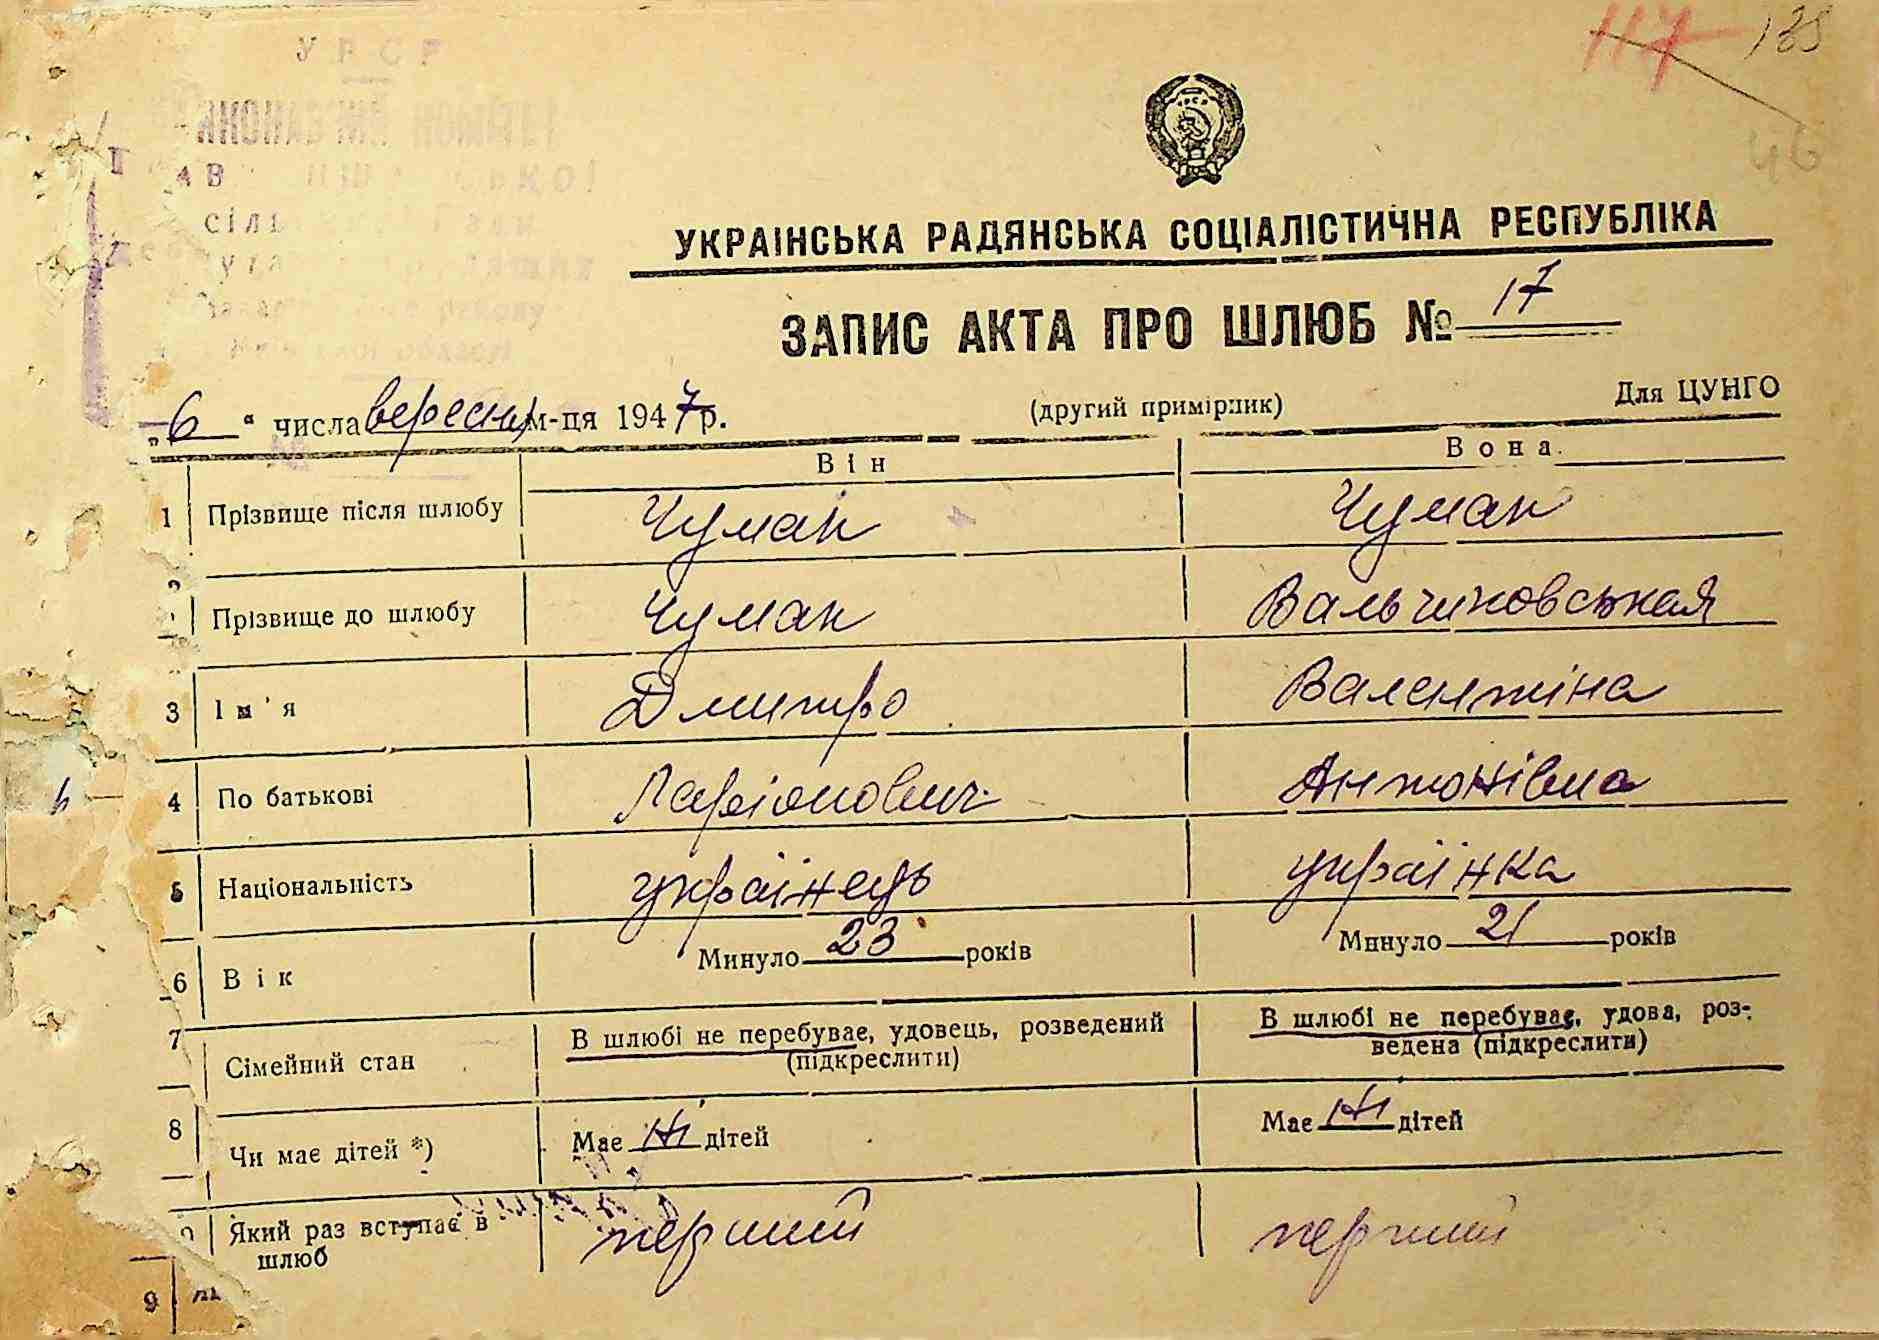 УРСР
117 138
46
УКРАЇНСЬКА РАДЯНСЬКА СОЦІАЛІСТИЧНА РЕСПУБЛІКА
ЗАПИС АКТА ПРО ШЛЮБ № 17
„6“ числа вересня м-ця 1947 р. (другий примірник) Для ЦУНГО
Він Вона
1 Прізвище після шлюбу Чуман Чуман
2 Прізвище до шлюбу Чуман Вальчиковськая
3 Ім'я Дмитро Валентіна
4 По батькові Ларіонович Антонівна
5 Національність українець українка
6 Вік Минуло 23 років Минуло 21 років
7 Сімейний стан В шлюбі не перебуває, удовець, розведений (підкреслити) В шлюбі не перебуває, удова, роз-
ведена (підкреслити)
8 Чи має дітей *) Має ні дітей Має ні дітей
Який раз вступає в шлюб перший перший
9